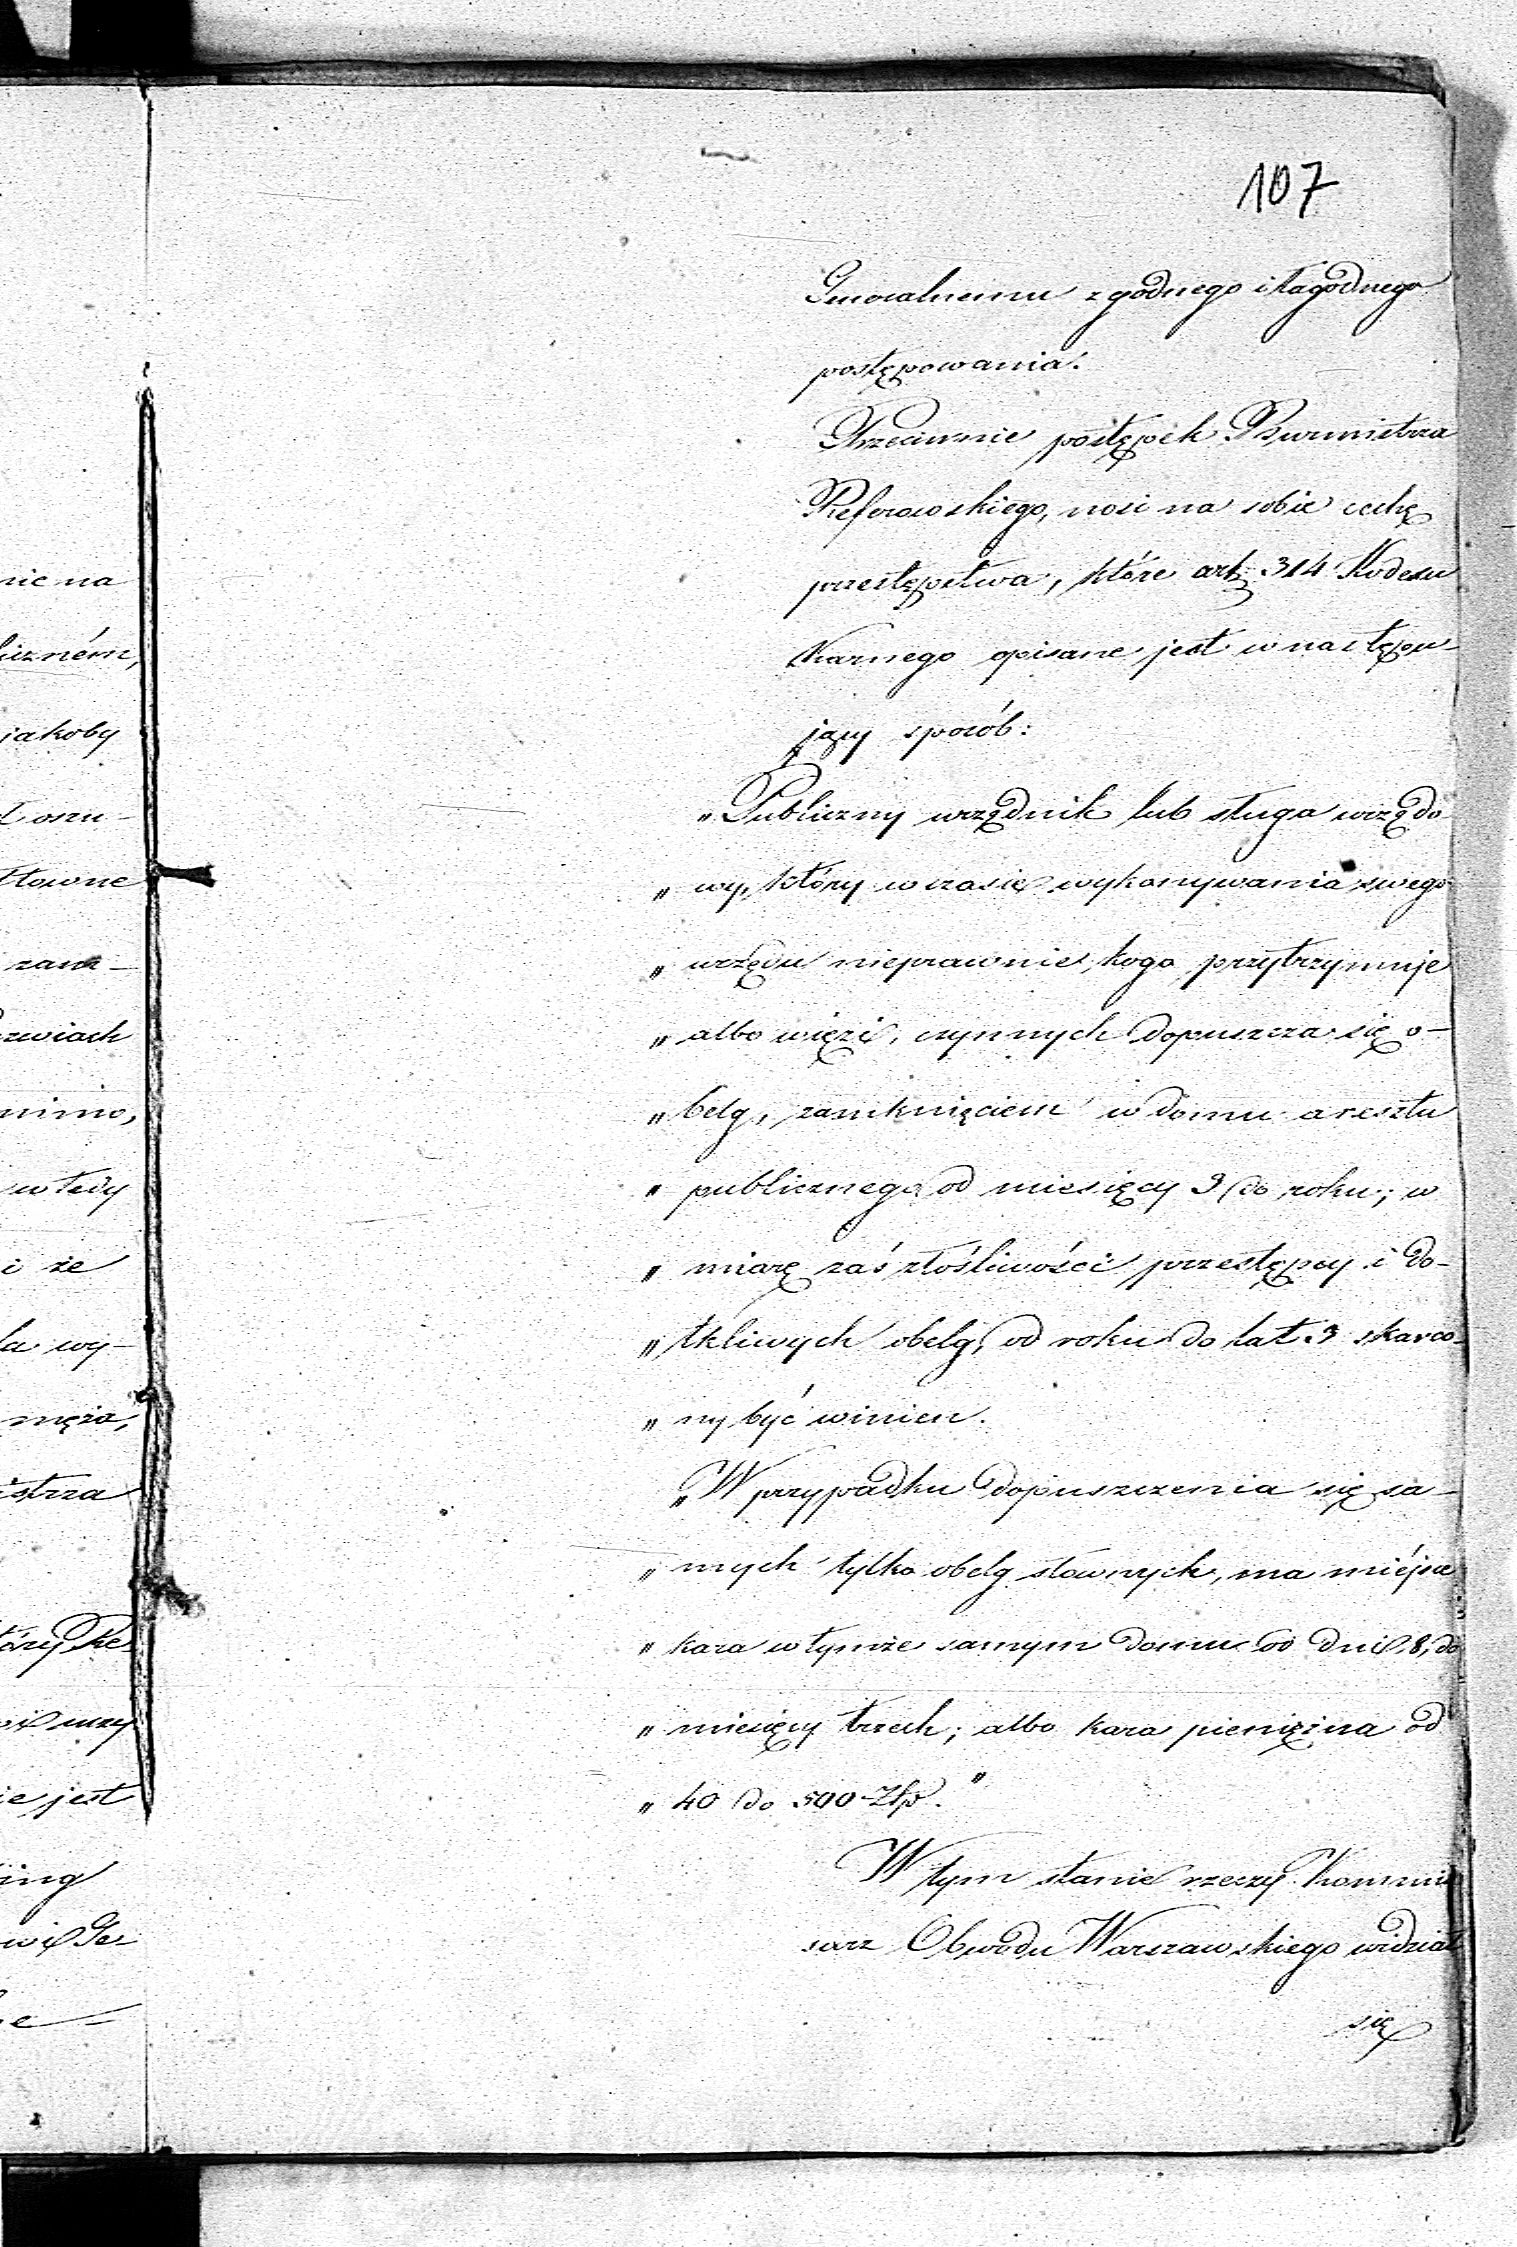 107
Generalnemu zgodnego i łagodnego
postępowania.
Przeciwnie postępek Burmistrza
Keferowskiego, nosi na sobie cechę
przestępstwa, które art. 314 Kodexu
Karnego opisane jest w następu-
jący sposób:
„Publiczny urzędnik lub sługa urzędo-
„ wy, który w czasie wykonywania swego
„ urzędu nieprawnie, kogo przytrzymuje
„ albo więzi, czynnych dopuszcza się o-
„ belg, zamknięciem w domu aresztu
„ publicznego od miesięcy 3 do roku; w
„ miarę zaś złośliwości przestępcy i do-
„ tkliwych obelg, od roku do lat 3 skarco-
„ ny być winien.
„W przypadku dopuszczenia się sa-
„ mych tylko obelg słownych, ma miéjsce
„ kara w tymże samym domu od dni 8, do
„ miesięcy trzech; albo kara pieniężna od
„ 40 do 500 Złp."
W tym stanie rzeczy Kommis
sarz Obwodu Warszawskiego widział
się
nie na
jakoby
zam-
mimo,
wtedy
i że
la wy-
męża,
ie jest